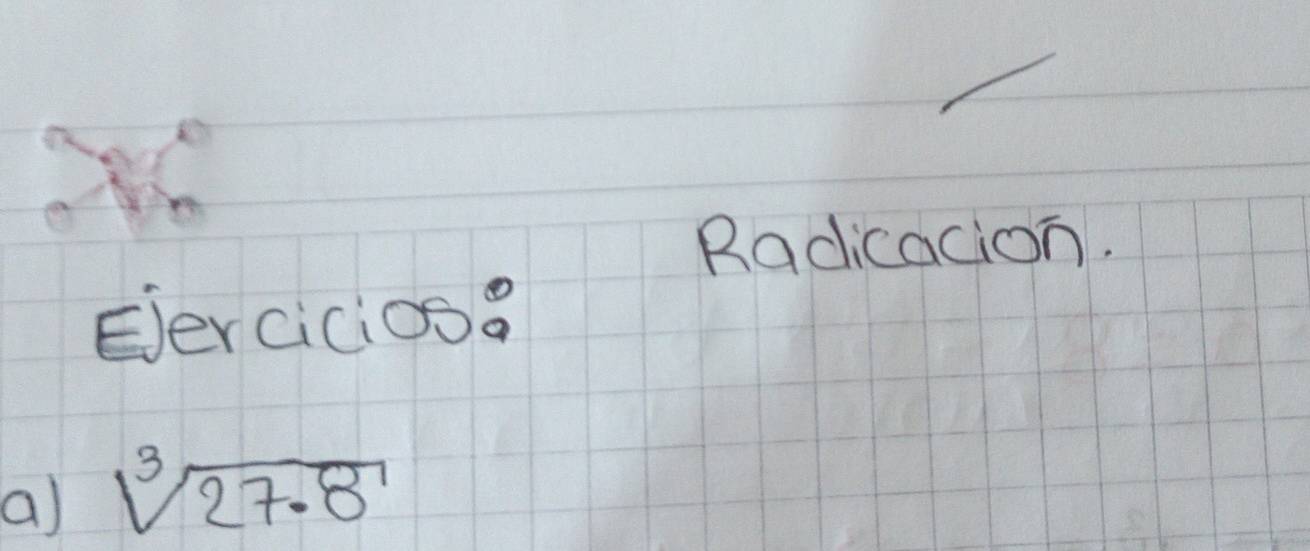 Radicación.
Ejercicios:
a) ∛27.8